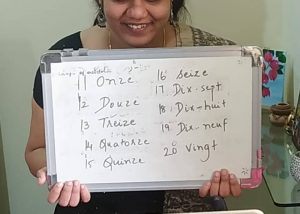 11 Onze
12 Douze
13 Treize
14 Quatorze
15 Quinze
16 Seize
17 Dix-sept
18 Dix-huit
19 Dix-neuf
20 Vingt